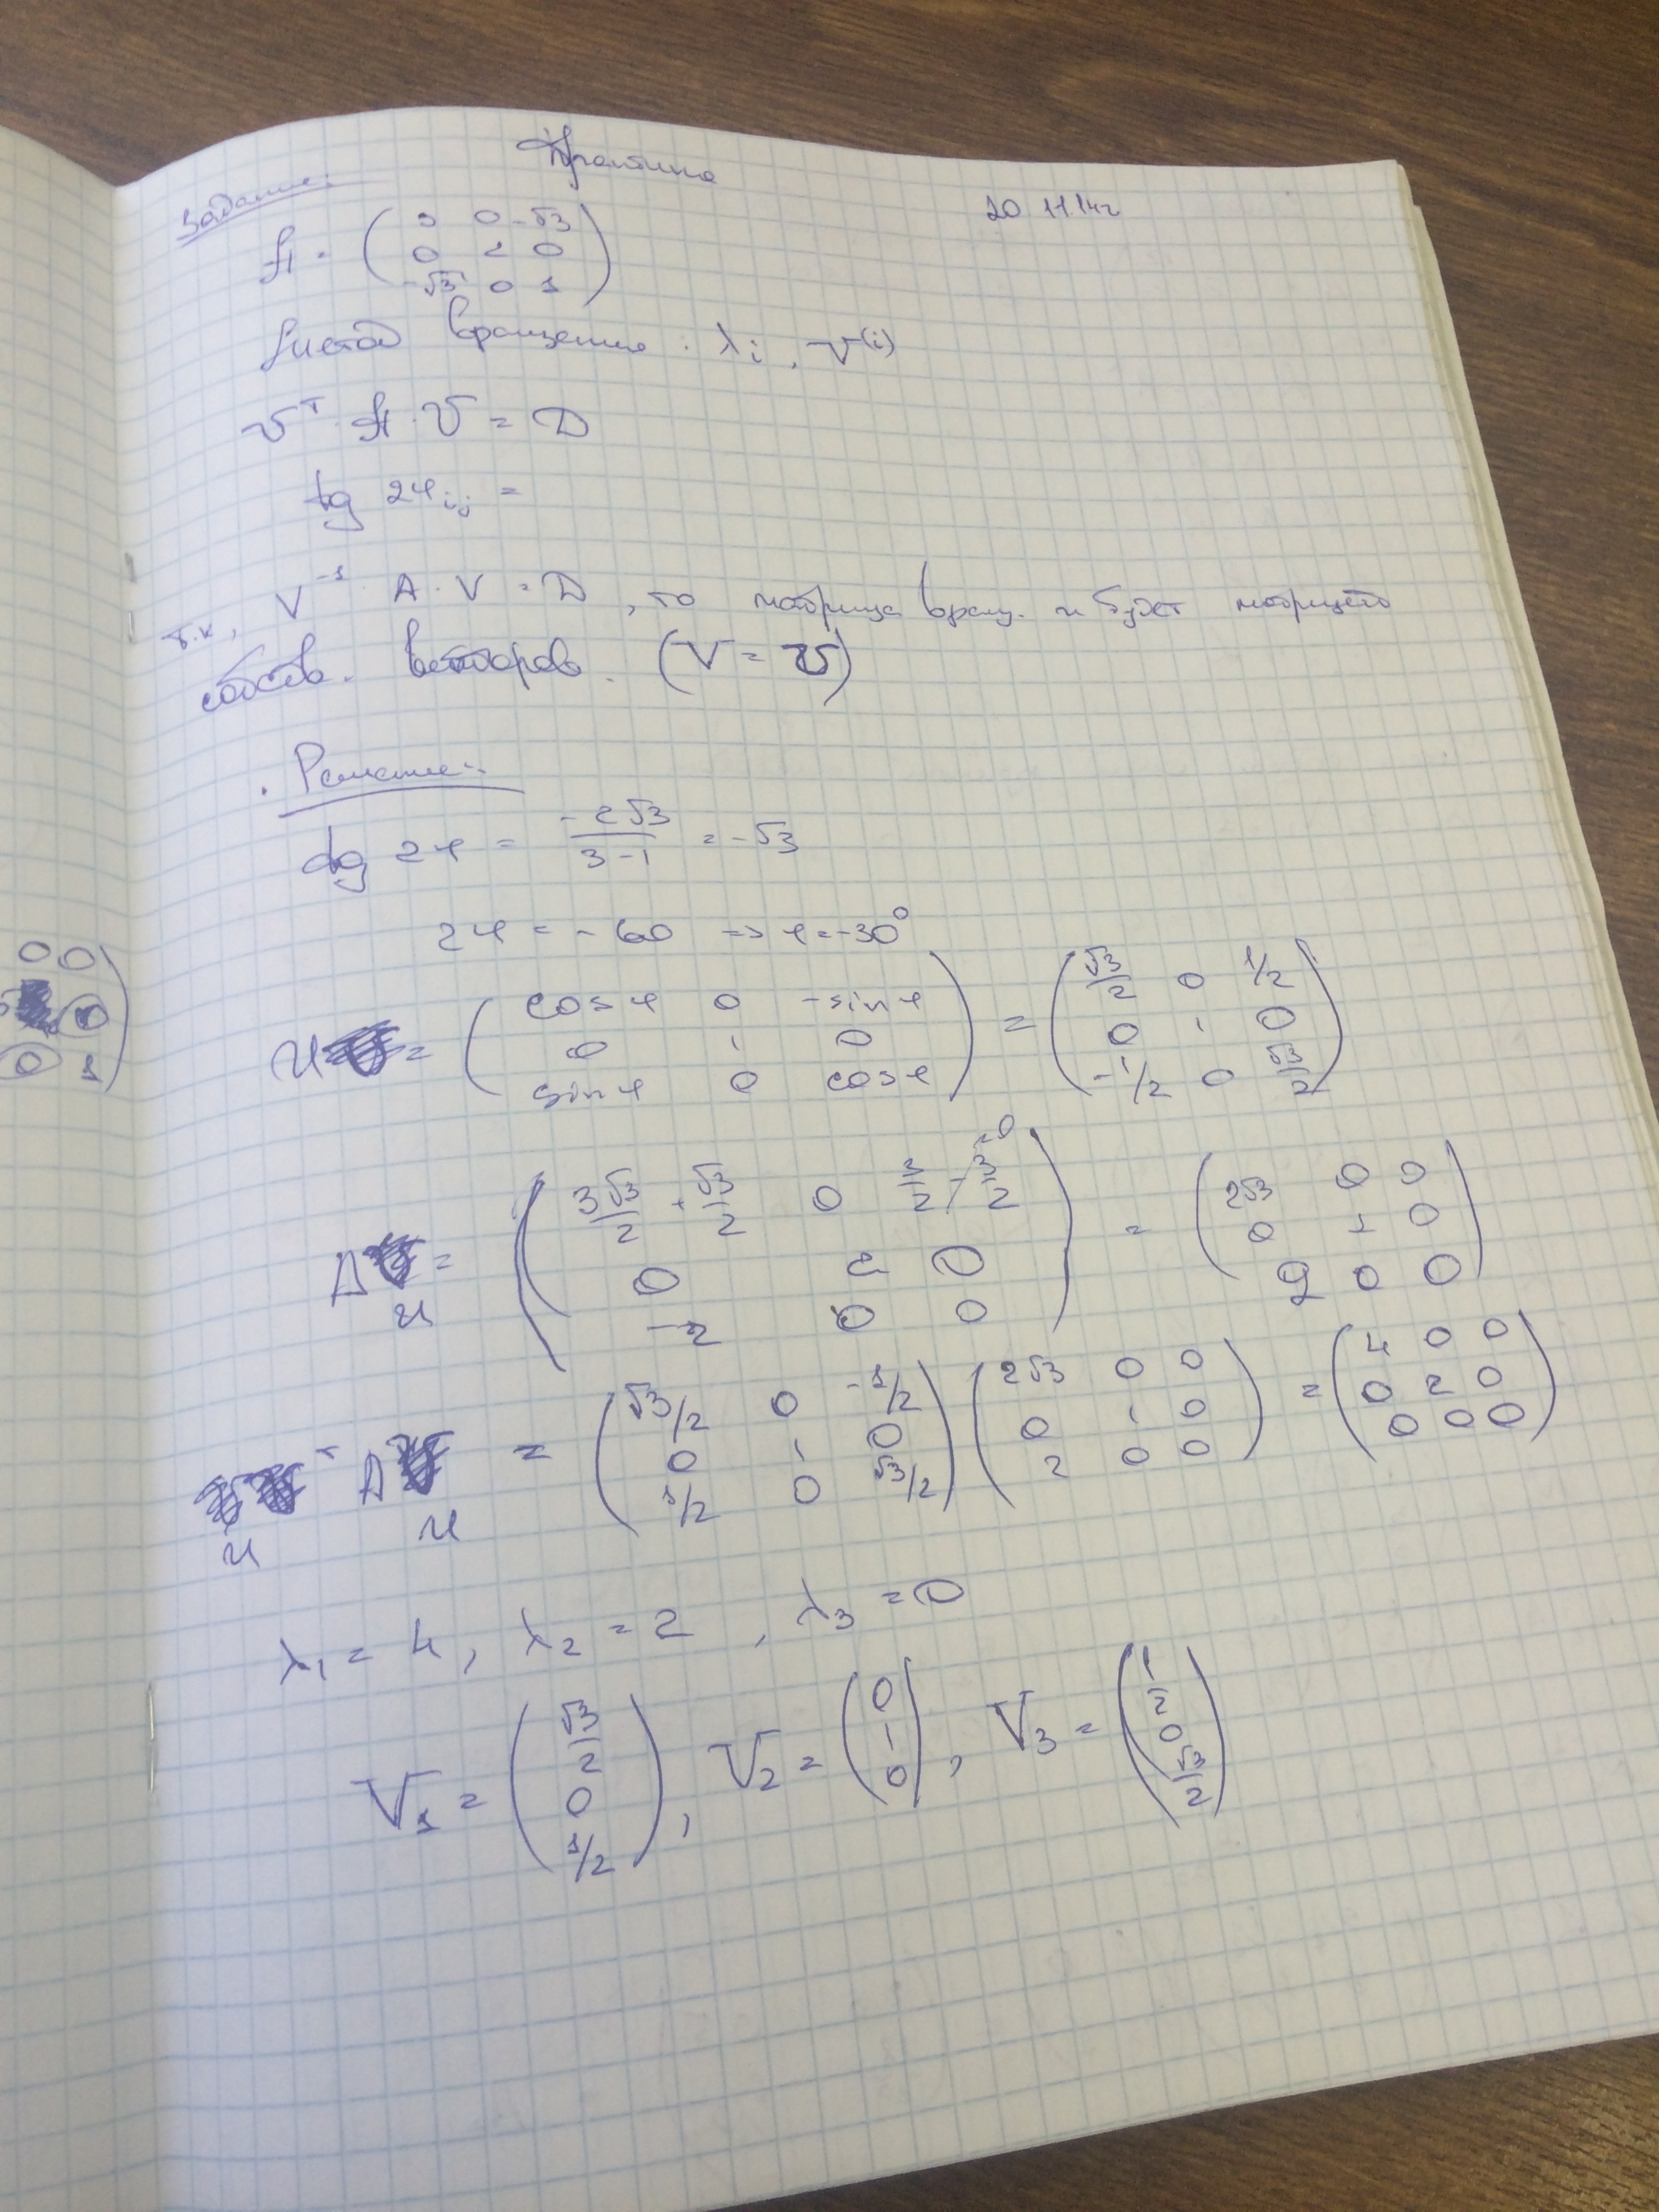 Практика
20 11 14г
Задание:
A = ( 3 0 -√3
0 2 0
-√3 0 1 )
Метод вращения : λi , v(i)
U^T · A · U = D
tg 2φij =
т.к, V^-1 · A · V = D , то матрица вращ. и будет матрицей
собств. векторов. (V = U)
Решение:
tg 2φ = -2√3/(3-1) = -√3
2φ = -60 => φ = -30°
U = ( cosφ 0 -sinφ
0 1 0
sinφ 0 cosφ ) = ( √3/2 0 1/2
0 1 0
-1/2 0 √3/2 )
AU = ( 3√3/2 + √3/2 0 3/2 - 3/2 =0
0 2 0
-2 0 0 ) = ( 2√3 0 0
0 1 0
2 0 0 )
U^T A U = ( √3/2 0 -1/2
0 1 0
1/2 0 √3/2 ) ( 2√3 0 0
0 1 0
2 0 0 ) = ( 4 0 0
0 2 0
0 0 0 )
λ1 = 4, λ2 = 2 , λ3 = 0
V1 = ( √3/2
0
1/2 ) , V2 = ( 0
1
0 ) , V3 = ( 1/2
0
√3/2 )
0 0
0
0 1